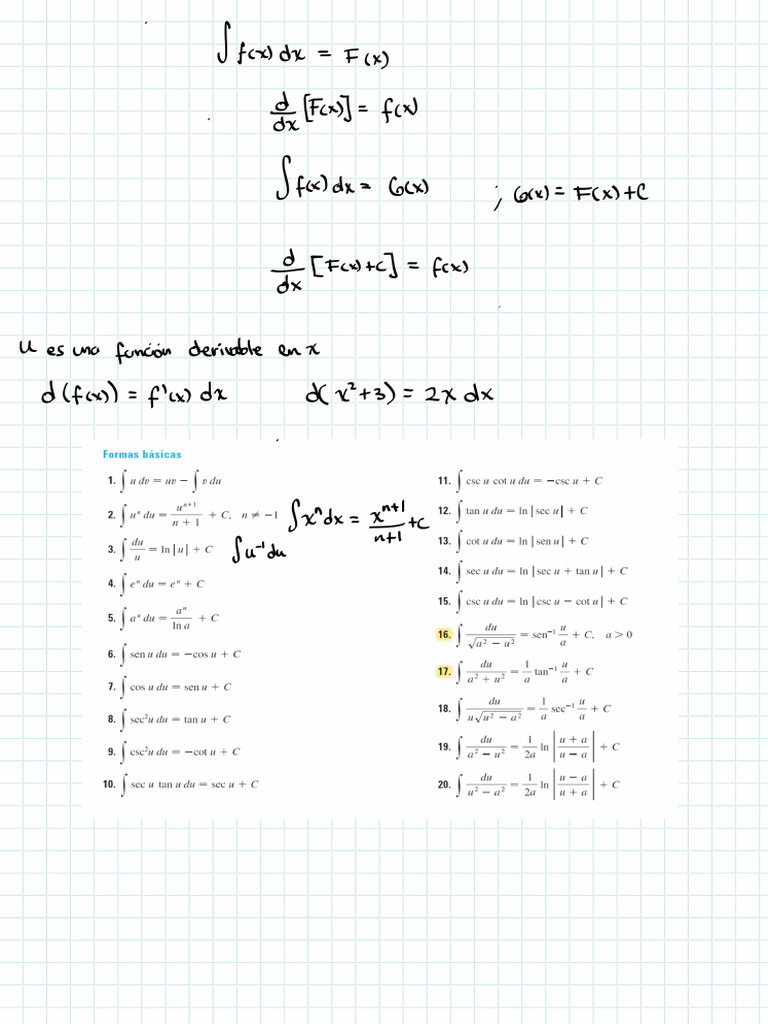 ∫ f(x) dx = F(x)
d/dx [F(x)] = f(x)
∫ f(x) dx = G(x) ; G(x) = F(x) + C
d/dx [F(x) + C] = f(x)
u es una función derivable en x
d(f(x)) = f'(x) dx d(x² + 3) = 2x dx
Formas básicas
1. ∫ u dv = uv − ∫ v du
2. ∫ uⁿ du = uⁿ⁺¹/(n + 1) + C, n ≠ −1 ∫ xⁿ dx = xⁿ⁺¹/(n+1) + C
3. ∫ du/u = ln |u| + C ∫ u⁻¹ du
4. ∫ eᵘ du = eᵘ + C
5. ∫ aᵘ du = aᵘ/ln a + C
6. ∫ sen u du = −cos u + C
7. ∫ cos u du = sen u + C
8. ∫ sec²u du = tan u + C
9. ∫ csc²u du = −cot u + C
10. ∫ sec u tan u du = sec u + C
11. ∫ csc u cot u du = −csc u + C
12. ∫ tan u du = ln |sec u| + C
13. ∫ cot u du = ln |sen u| + C
14. ∫ sec u du = ln |sec u + tan u| + C
15. ∫ csc u du = ln |csc u − cot u| + C
16. ∫ du/√(a² − u²) = sen⁻¹ u/a + C, a > 0
17. ∫ du/(a² + u²) = 1/a tan⁻¹ u/a + C
18. ∫ du/(u√(u² − a²)) = 1/a sec⁻¹ u/a + C
19. ∫ du/(a² − u²) = 1/2a ln |(u + a)/(u − a)| + C
20. ∫ du/(u² − a²) = 1/2a ln |(u − a)/(u + a)| + C